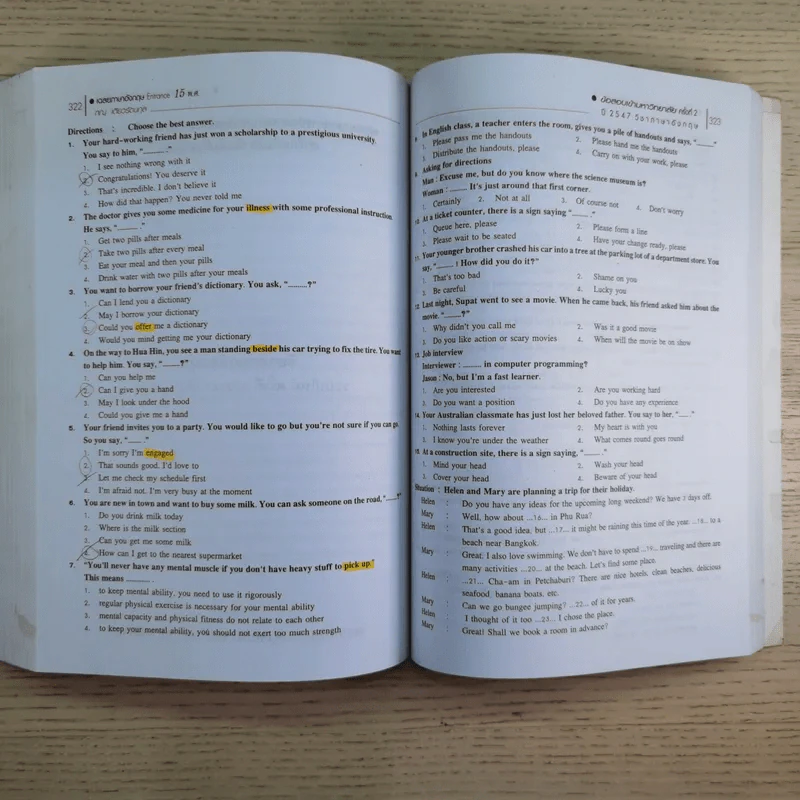 322 ● เฉลยภาษาอังกฤษ Entrance 15 พ.ศ.
Directions : Choose the best answer.
1. Your hard-working friend has just won a scholarship to a prestigious university.
You say to him, "........."
1. I see nothing wrong with it
2. Congratulations! You deserve it
3. That's incredible. I don't believe it
4. How did that happen? You never told me
2. The doctor gives you some medicine for your illness with some professional instruction.
He says, "........."
1. Get two pills after meals
2. Take two pills after every meal
3. Eat your meal and then your pills
4. Drink water with two pills after your meals
3. You want to borrow your friend's dictionary. You ask, ".........?"
1. Can I lend you a dictionary
2. May I borrow your dictionary
3. Could you offer me a dictionary
4. Would you mind getting me your dictionary
4. On the way to Hua Hin, you see a man standing beside his car trying to fix the tire. You want
to help him. You say, "......?"
1. Can you help me
2. Can I give you a hand
3. May I look under the hood
4. Could you give me a hand
5. Your friend invites you to a party. You would like to go but you're not sure if you can go.
So you say, "...... ."
1. I'm sorry I'm engaged
2. That sounds good. I'd love to
3. Let me check my schedule first
4. I'm afraid not. I'm very busy at the moment
6. You are new in town and want to buy some milk. You can ask someone on the road, "......?"
1. Do you drink milk today
2. Where is the milk section
3. Can you get me some milk
4. How can I get to the nearest supermarket
7. "You'll never have any mental muscle if you don't have heavy stuff to pick up."
This means ......... .
1. to keep mental ability, you need to use it rigorously
2. regular physical exercise is necessary for your mental ability
3. mental capacity and physical fitness do not relate to each other
4. to keep your mental ability, you should not exert too much strength
● ข้อสอบเข้ามหาวิทยาลัย ครั้งที่ 2
ปี 2547 วิชาภาษาอังกฤษ 323
In English class, a teacher enters the room, gives you a pile of handouts and says, "......"
1. Please pass me the handouts 2. Please hand me the handouts
3. Distribute the handouts, please 4. Carry on with your work, please
9. Asking for directions
Man : Excuse me, but do you know where the science museum is?
Woman : ...... It's just around that first corner.
1. Certainly 2. Not at all 3. Of course not 4. Don't worry
10. At a ticket counter, there is a sign saying "...... ."
1. Queue here, please 2. Please form a line
3. Please wait to be seated 4. Have your change ready, please
11. Your younger brother crashed his car into a tree at the parking lot of a department store. You
say, "...... ! How did you do it?"
1. That's too bad 2. Shame on you
3. Be careful 4. Lucky you
12. Last night, Supat went to see a movie. When he came back, his friend asked him about the
movie. "......?"
1. Why didn't you call me 2. Was it a good movie
3. Do you like action or scary movies 4. When will the movie be on show
13. Job interview
Interviewer : ...... in computer programming?
Jason : No, but I'm a fast learner.
1. Are you interested 2. Are you working hard
3. Do you want a position 4. Do you have any experience
14. Your Australian classmate has just lost her beloved father. You say to her, "...... ."
1. Nothing lasts forever 2. My heart is with you
3. I know you're under the weather 4. What comes round goes round
15. At a construction site, there is a sign saying, "...... ."
1. Mind your head 2. Wash your head
3. Cover your head 4. Beware of your head
Situation : Helen and Mary are planning a trip for their holiday.
Helen : Do you have any ideas for the upcoming long weekend? We have 3 days off.
Mary : Well, how about ...16... in Phu Rua?
Helen : That's a good idea, but ...17... it might be raining this time of the year. ...18... to a
beach near Bangkok.
Mary : Great. I also love swimming. We don't have to spend ...19... traveling and there are
many activities ...20... at the beach. Let's find some place.
Helen : ...21... Cha-am in Petchaburi? There are nice hotels, clean beaches, delicious
seafood, banana boats, etc.
Mary : Can we go bungee jumping? ...22... of it for years.
Helen : I thought of it too ...23... I chose the place.
Mary : Great! Shall we book a room in advance?